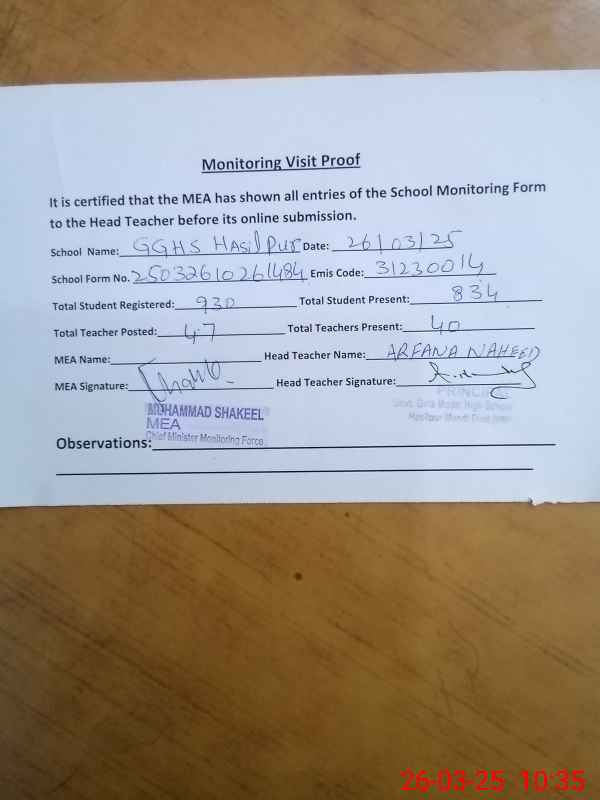 Monitoring Visit Proof
It is certified that the MEA has shown all entries of the School Monitoring Form
to the Head Teacher before its online submission.
School Name: GGHS Hasilpur Date: 26/03/25
School Form No. 25032610261484 Emis Code: 31230014
Total Student Registered: 930 Total Student Present: 834
Total Teacher Posted: 47 Total Teachers Present: 40
MEA Name: Head Teacher Name: ARFANA NAHEED
MEA Signature: Head Teacher Signature:
MUHAMMAD SHAKEEL
MEA
Chief Minister Monitoring Force
Govt. Girls Model High School
Observations:
26-03-25 10:35